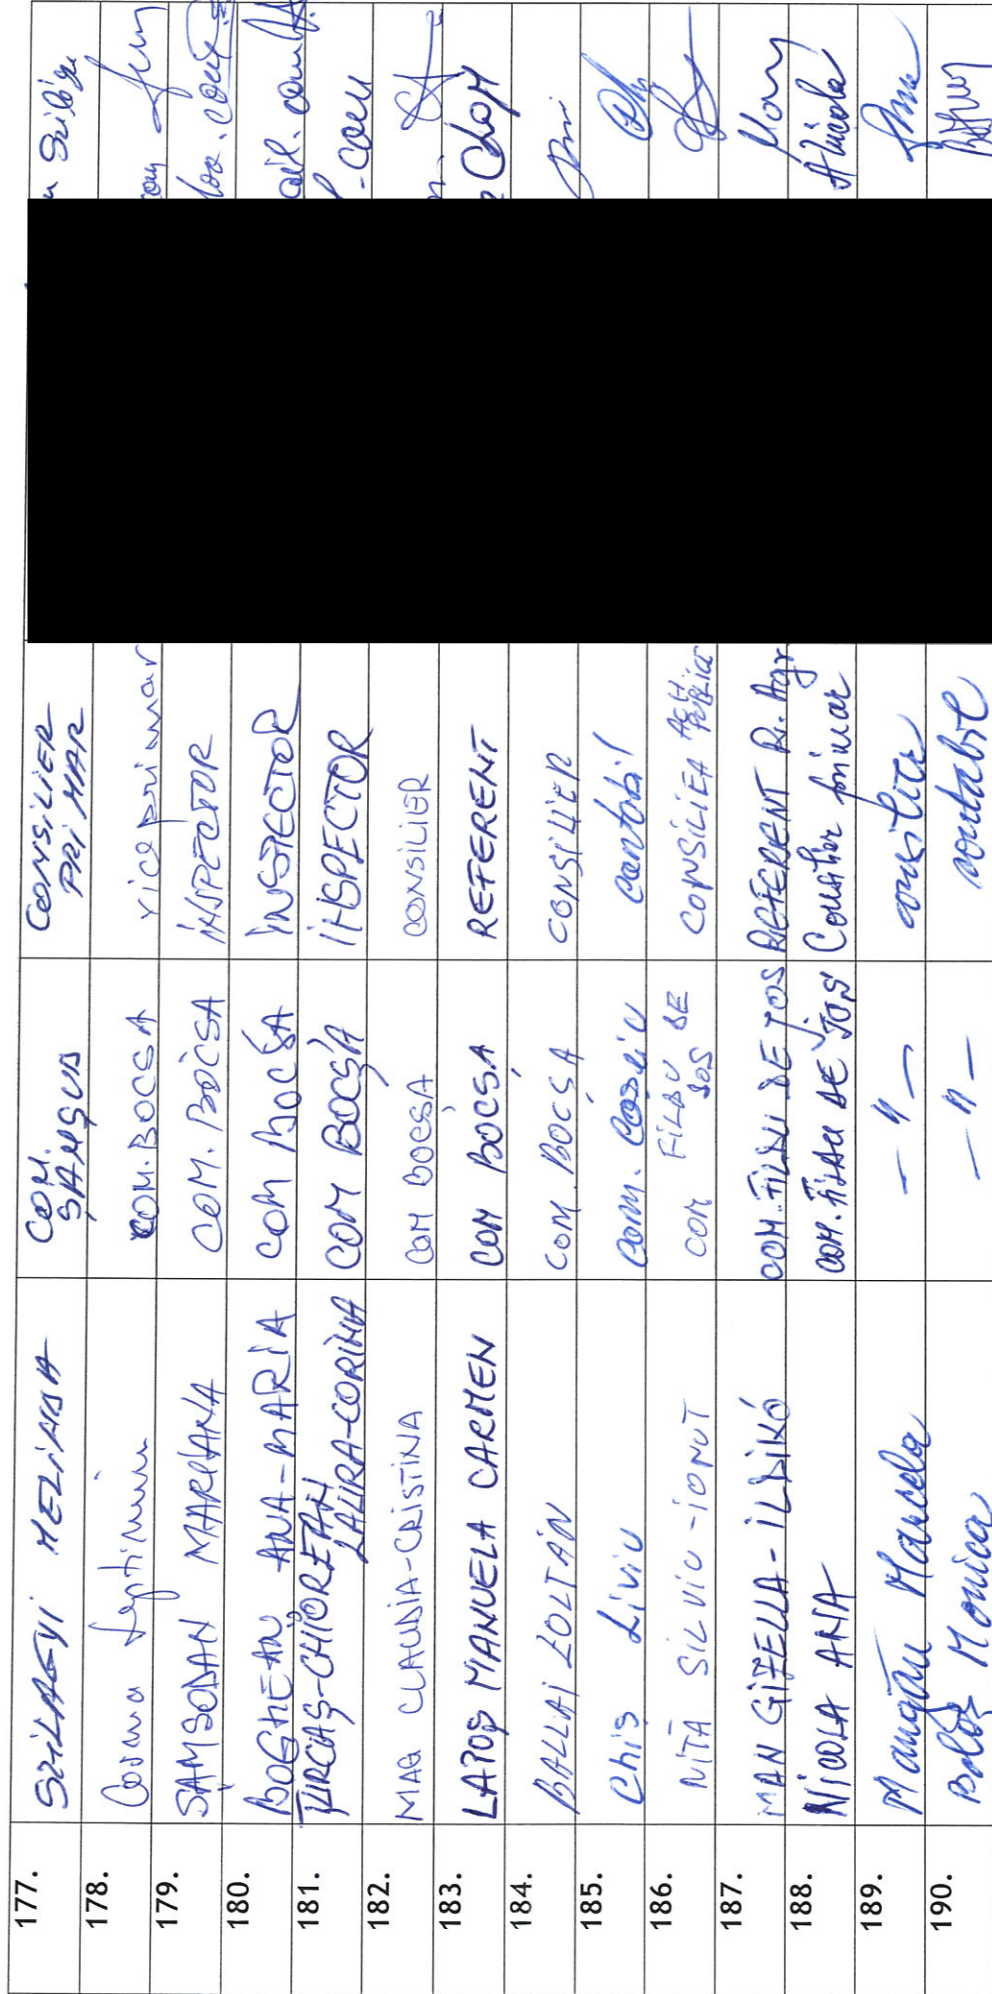 177. SZILAGYI MELINDA COM. SÂNGUS CONSILIER PRIMAR
178. Cosma Septimiu COM. BOCSA viceprimar
179. SAMSODAN MARIANA COM. BOCSA INSPECTOR
180. BOGHEAN ANA-MARIA COM BOCSA INSPECTOR
181. TURCAȘ-CHIOREAN LAURA-CORINA COM BOCȘA INSPECTOR com
182. MAG CLAUDIA-CRISTINA COM BOCSA CONSILIER
183. LAPOȘ MANUELA CARMEN COM BOCȘA REFERENT
184. BALLAI ZOLTAN COM. BOCȘA CONSILIER
185. Chiș Liviu com. Coșeiu contabil
186. NIȚĂ SILVIU-IONUȚ COM FILDU DE JOS CONSILIER
187. MAN GIZELLA-ILDIKÓ COM. FILDU DE JOS REFERENT R. Agr
188. NICOLA ANA COM. FILDU DE JOS Consilier primar ANicola
189. Mangău Marcela -"- consilier
190. Boloș Monica -"- contabil